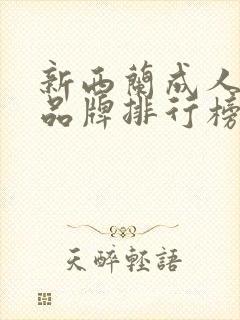 新西蘭成人
品牌排行榜
天醉輕語